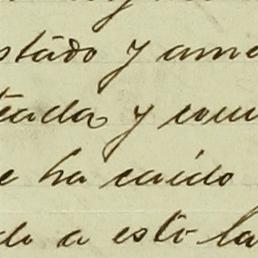 stado y ame
teada y com
e ha caido
do a esto la